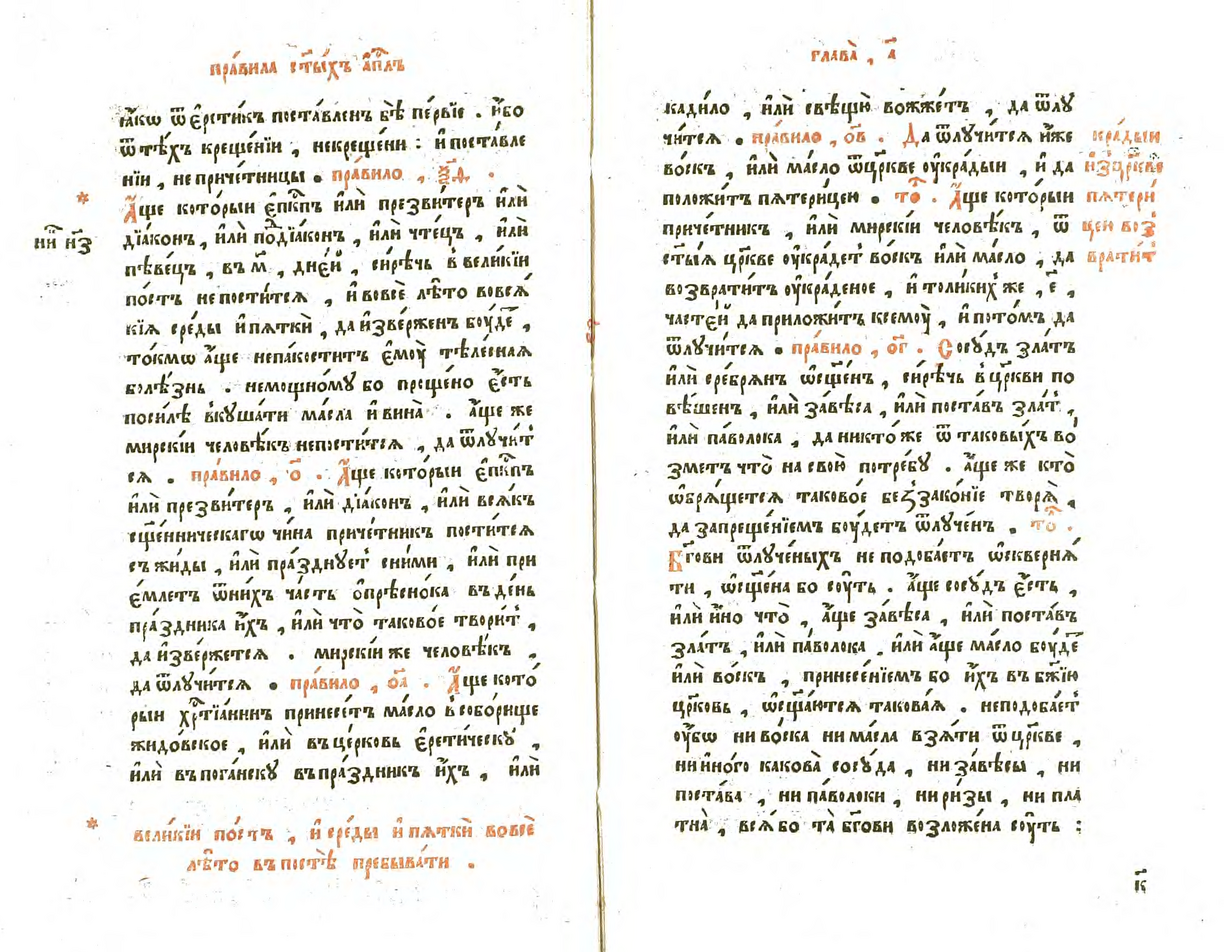 пра́вила ст҃ы́хъ а҆п҃лъ
ꙗ҆́кѡ ѿ є҆рети́къ поста́вленъ бѣ̀ пе́рвїе . и҆́бо
ѿ тѣ́хъ креще́нїи , некреще́ни : и҆ поста́вле
нїи , не приче́тницы . пра́вило , ѯ҃ѳ .
А҆́ще кото́рыи є҆пк҃пъ и҆лѝ презви́теръ и҆лѝ
дїа́конъ , и҆лѝ по́дїа́конъ , и҆лѝ чте́цъ , и҆лѝ
пѣве́цъ , въ м҃ , дне́й , си́рѣчь в вели́кїи
по́стъ непости́тся , и҆ вовсѐ лѣ́то вовсѧ́
кїѧ сре́ды и҆ пѧ́тки , да и҆зве́рженъ бꙋ́де ,
то́кмѡ а҆́ще непа́коститъ є҆мꙋ̀ тѣле́снаѧ
болѣ́знь . немощно́мꙋ бо проще́но є҆́сть
поси́лѣ вкꙋша́ти ма́сла и҆ вина̀ . а҆́ще же
мирскі́и человѣ́къ непости́тсѧ , да ѿлꙋчи́т
сѧ . пра́вило , о҃ . А҆́ще кото́рыи є҆пк҃пъ
и҆лѝ презви́теръ , и҆лѝ дїа́конъ , и҆лѝ всѧ́къ
сщ҃е́нническагѡ чи́на приче́тникъ пости́тсѧ
съ жиды̀ , и҆лѝ пра́зднꙋет сни́ми , и҆лѝ при
є҆́млетъ ѿ ни́хъ ча́сть ѻ҆прѣсно́ка въ де́нь
пра́здника и҆́хъ , и҆лѝ что̀ таково́е твори́т ,
да и҆зве́ржетсѧ . мирскі́и же человѣ́къ ,
да ѿлꙋчи́тсѧ . пра́вило , о҃а . А҆́ще кото́
рыи хр҃тїа́нинъ принесе́тъ ма́сло в собо́рище
жидо́вское , и҆лѝ въ це́рковь є҆рети́ческꙋ ,
и҆лѝ въ пога́нскꙋ въ пра́здникъ и҆́хъ , и҆лѝ
* вели́кїи по́стъ , и҆ сре́ды и҆ пѧ́тки вовсѐ
лѣ́то въ постѣ̀ пребыва́ти .
глава̀ , а҃
кади́ло , и҆лѝ свѣщꙋ̀ вожже́тъ , да ѿлꙋ
чи́тсѧ . пра́вило , о҃в . Да ѿлꙋчи́тсѧ и҆́же
во́скъ , и҆лѝ ма́сло ѿ цр҃кве ᲂу҆кра́дыи , и҆ да
положи́тъ пѧтери́цею . то́ . А҆́ще кото́рыи
приче́тникъ , и҆лѝ мирскі́и человѣ́къ , ѿ
ст҃ы́ѧ цр҃кве ᲂу҆кра́дет во́скъ и҆лѝ ма́сло , да
возврати́тъ ᲂу҆кра́деное , и҆ толи́ких же , е҃ ,
часте́й да приложи́тъ ксемꙋ̀ , и҆ пото́мъ да
ѿлꙋчи́тсѧ . пра́вило , о҃г . Сосꙋ́дъ зла́тъ
и҆лѝ сре́брѧнъ ѡ҆сщ҃е́нъ , си́рѣчь в цр҃кви по
вѣ́шенъ , и҆лѝ завѣ́са , и҆лѝ поста́въ зла́т ,
и҆лѝ па́волока , да никто́же ѿ таковы́хъ во́
зметъ что̀ на свою̀ потре́бꙋ . а҆́ще же кто̀
ѡ҆брѧ́щетсѧ таково́е беззако́нїе творѧ̀ ,
да запреще́нїемъ бꙋ́детъ ѿлꙋче́нъ . то́ .
Бг҃ови ѿлꙋче́ныхъ не подоба́етъ ѡ҆сквернѧ́
ти , ѡ҆сщ҃е́на бо сꙋ́ть . а҆́ще сосꙋ́дъ є҆́сть ,
и҆лѝ и҆́но что̀ , а҆́ще завѣ́са , и҆лѝ поста́въ
зла́тъ , и҆лѝ па́волока , и҆лѝ а҆́ще ма́сло бꙋ́де
и҆лѝ во́скъ , принесе́нїемъ бо и҆́хъ въ бж҃їю
цр҃ковь , ѡ҆сщ҃а́ютсѧ такова́ѧ . неподоба́ет
ᲂу҆́бѡ ни во́ска ни ма́сла взѧ́ти ѿ цр҃кве ,
ни и҆но́го какова̀ сосꙋ́да , ни завѣ́сы , ни
поста́ва , ни па́волоки , ни ри́зы , ни пла
тна̀ , всѧ̀ бо та̀ бг҃ови возложе́на сꙋ́ть :
кра́дыи
и҆з цр҃кве
пѧтери
цеи воз
врати́т
к҃